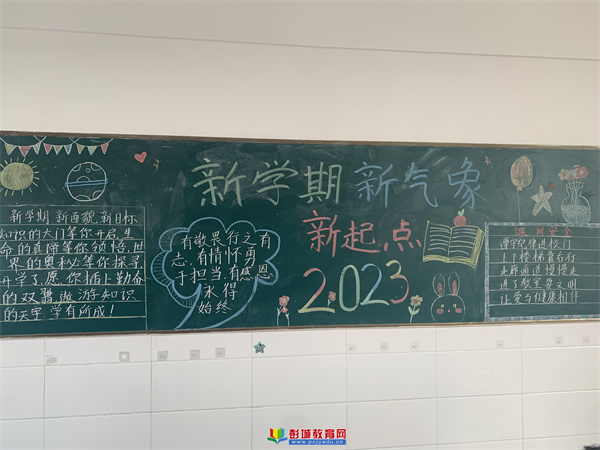 新学期 新气象
新起点
2023
新学期 新面貌 新目标
知识的大门等你开启,生
命的真谛等你领悟,世
界的奥秘等你探寻
开学了,愿你插上勤奋
的双翼遨游知识
的天宇,学有所成!
有敬畏 行之有
志,有情怀 勇
于担当,有感恩
永得
始终
课间安全
遵守纪律进校门
上下楼梯靠右行
走廊通道慢慢走
进了教室要文明
让爱与健康相伴
彭城教育网
www.pcjyedu.cn